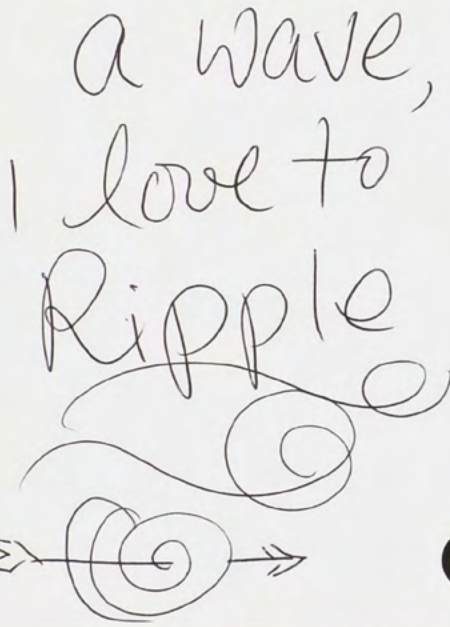 a wave,
I love to
Ripple